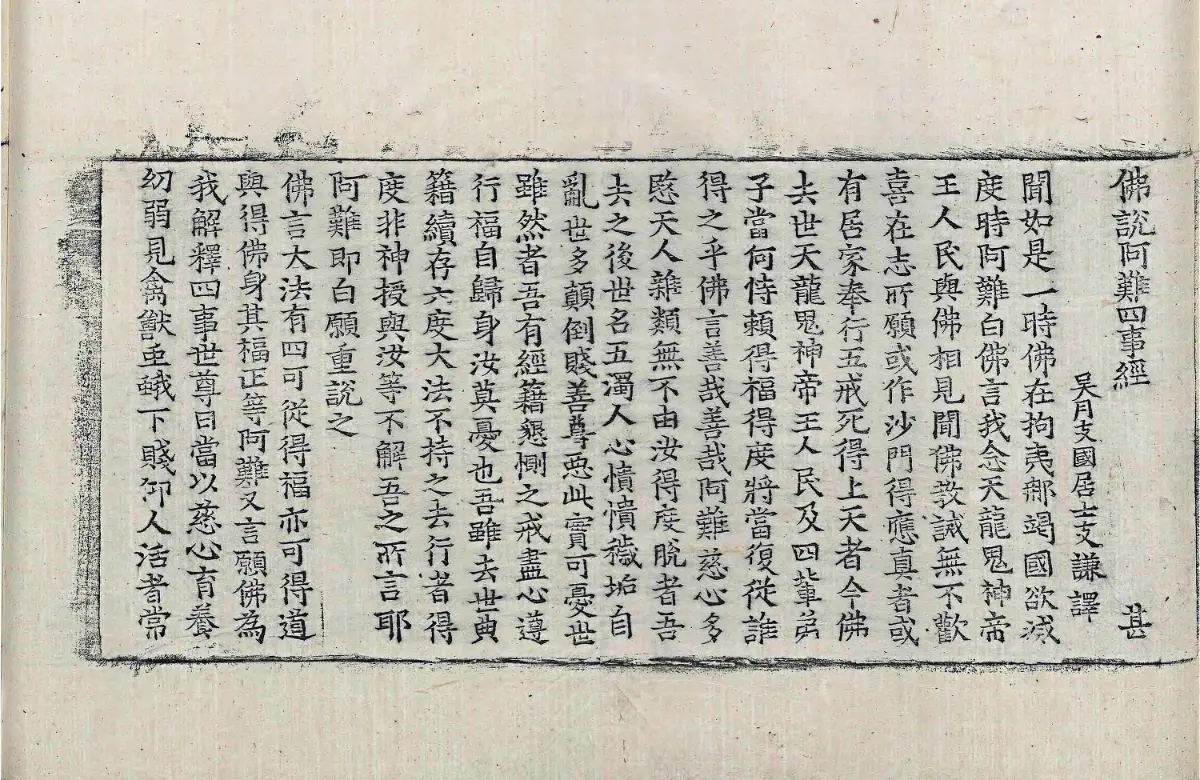 佛說阿難四事經 甚
吴月支國居士支謙譯
聞如是一時佛在拘夷那竭國欲滅
度時阿難白佛言我念天龍鬼神帝
王人民與佛相見聞佛教誡無不歡
喜在志所願或作沙門得應真者或
有居家奉行五戒死得上天者今佛
去世天龍鬼神帝王人民及四輩弟
子當何恃賴得福得度將當復從誰
得之乎佛言善哉善哉阿難慈心多
愍天人雜類無不由汝得度脫者吾
去之後世名五濁人心憒憒穢垢自
亂世多顛倒賤善尊惡此實可憂世
雖然者吾有經籍懇惻之戒盡心遵
行福自歸身汝莫憂也吾雖去世典
籍續存六度大法不持之去行者得
度非神授與汝等不解吾之所言耶
阿難即白願重說之
佛言大法有四可從得福亦可得道
與得佛身其福正等阿難又言願佛為
我解釋四事世尊曰當以慈心育養
幼弱見禽獸虫蛾下賤仰人活者常